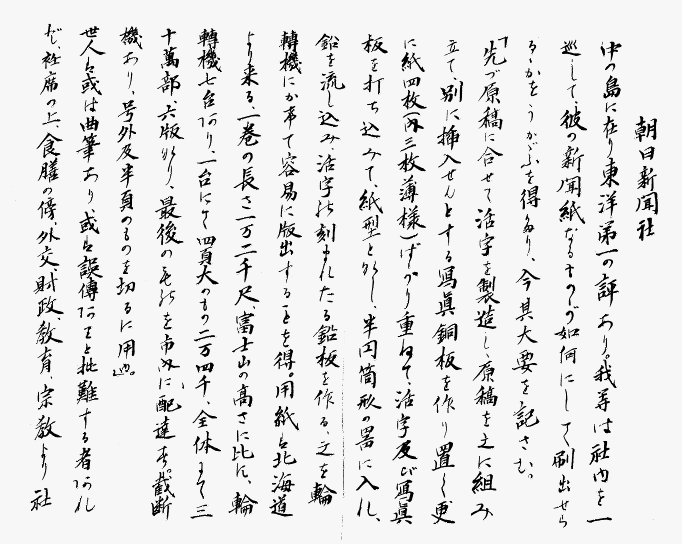 朝日新聞社
中の島に在り東洋第一の評あり。我等は社内を一
巡して、彼の新聞紙なるものが如何にして刷出せら
るゝかをうかゞふを得たり、今其大要を記さむ。
「先づ原稿に合せて活字を製造し、原稿を之に組み
立て、別に挿入せんとする写眞銅板を作り置く更
に紙四枚(内三枚薄様)ばかり重ねて、活字及び写眞
板を打ち込みて、紙型と為し、半円筒形の器に入れ、
鉛を流し込み、活字の刻まれたる鉛板を作る、之を輪
轉機にかけて容易に版出することを得。用紙は北海道
より来る、一巻の長さ一万二千尺、富士山の高さに比し、輪
轉機七台あり、一台にて四頁大のもの二万四千、全体にて三
十萬部、六版あり、最後のものを市内に配達す。截断
機あり、号外及半頁のものを切るに用ゐ。
世人は或は曲筆あり或は誤傳ありと批難する者あれ
ど、衽席の上、食膳の傍、外交、財政、教育、宗教より社